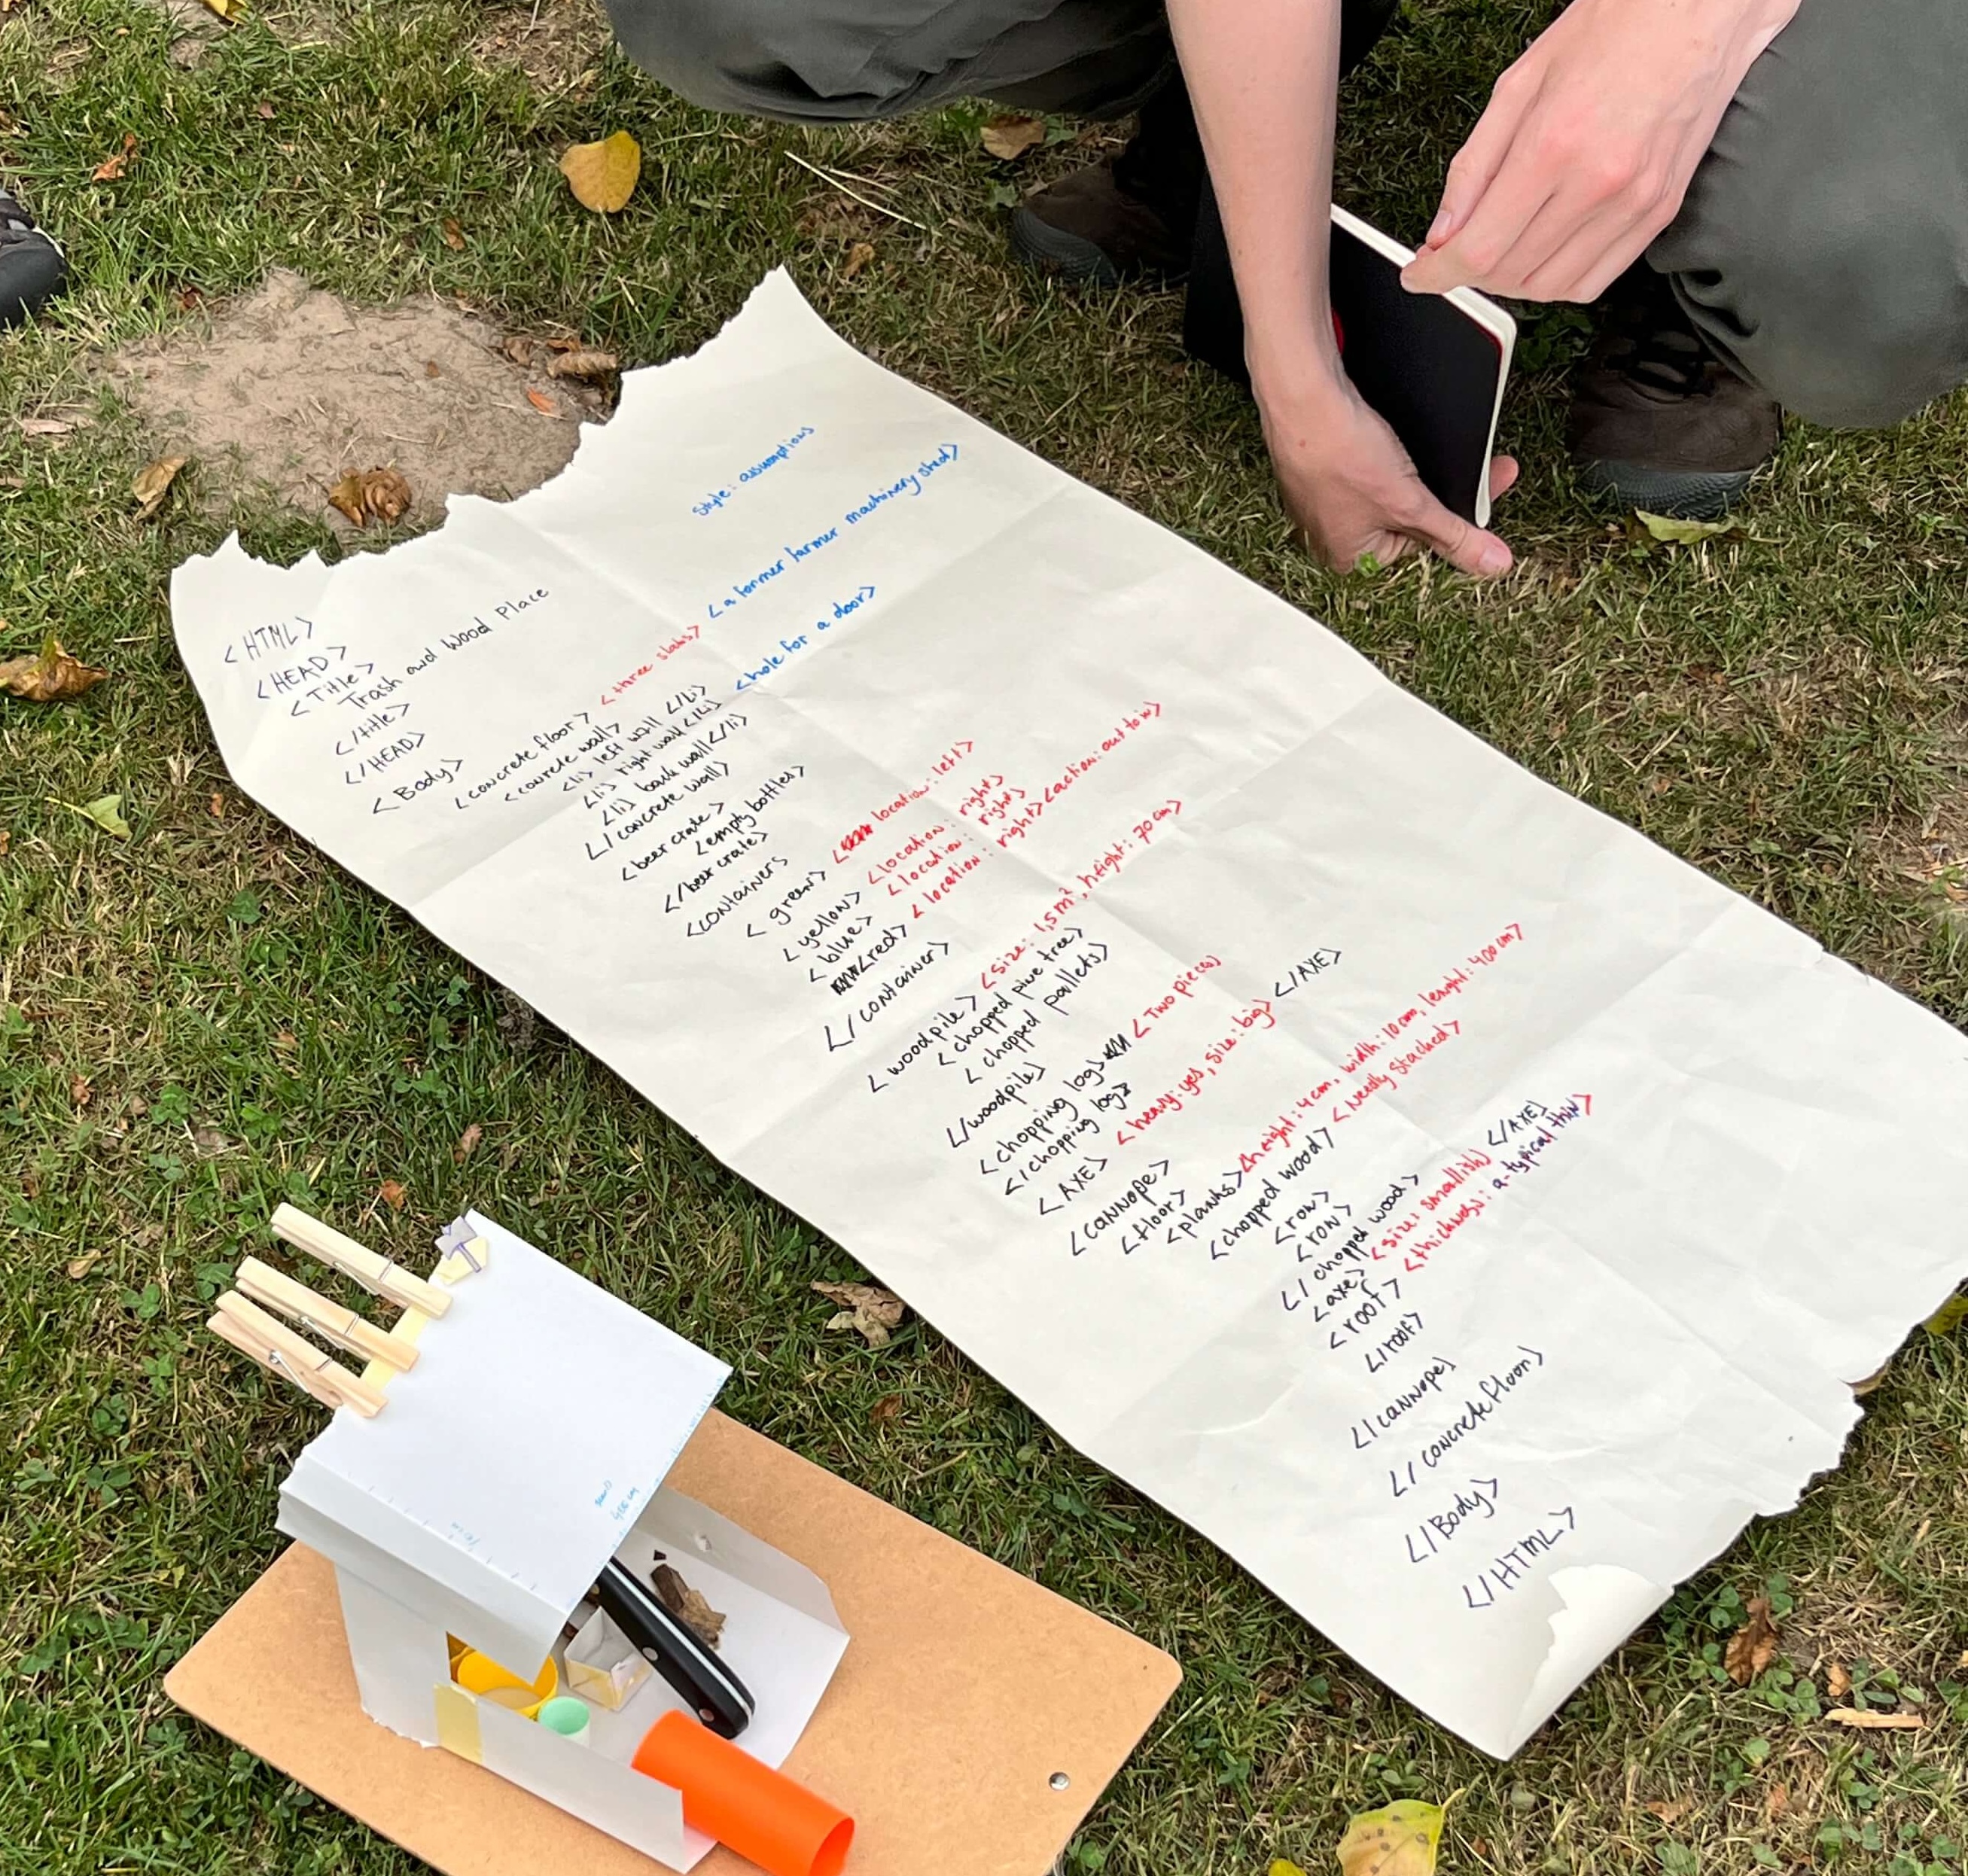 style: assumptions
<HTML>
<HEAD>
<Title>
Trash and Wood Place
</title>
</HEAD>
<Body>
<concrete floor> <three slabs> <a former farmer machinery shed>
<concrete wall>
<li> left wall </li> <hole for a door>
<li> right wall </li>
<li> back wall </li>
</concrete wall>
<beer crate>
<empty bottles>
</beer crate>
<containers
<green> < location: left>
<yellow> <location: right>
<blue> <location: right>
<red> <location: right> <action: out to in>
</container>
<woodpile> <size: 1,5 m², height: 70 cm>
<chopped pine tree>
<chopped pallets>
</woodpile>
<chopping logs <Two pieces>
</chopping logs
<AXE> <heavy: yes, size: big> </AXE>
<cannope>
<floor>
<planks> <height: 4 cm, width: 10 cm, lenght: 400 cm>
<chopped wood> <Neatly stacked>
<row>
<row>
</chopped wood>
<axe> <size: smallish> </AXE>
<roof> <thickness: a-typical thin>
</roof>
</cannope>
</concrete floor>
</Body>
</HTML>
400 cm